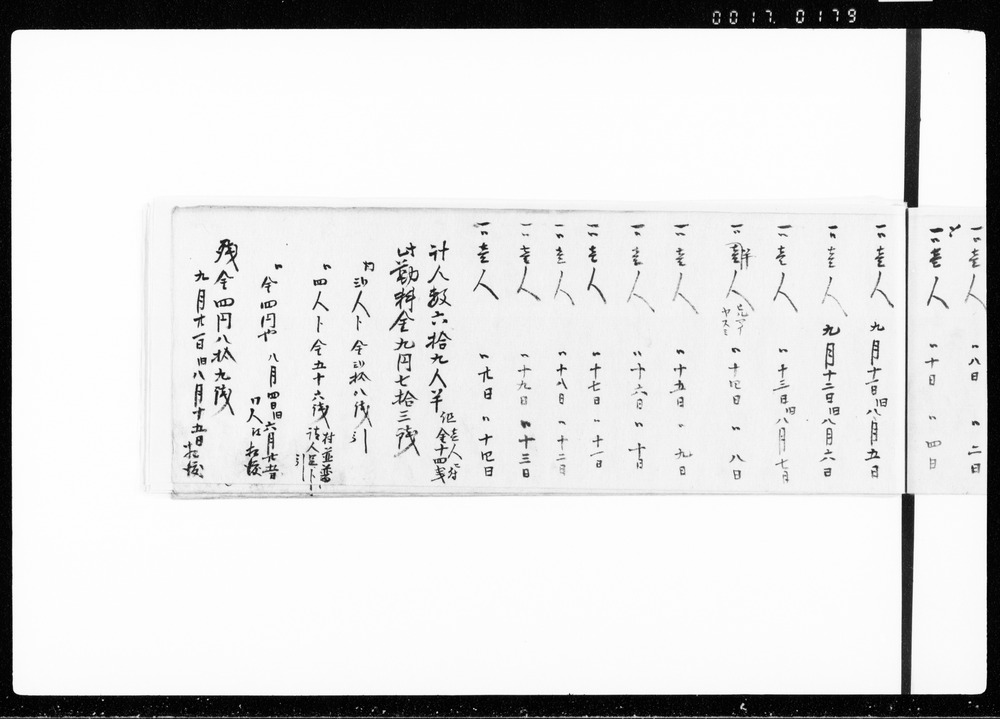 0017.0179
一〃壱人 〃八日 〃二日
一〃壱人 〃十日 〃四日
一〃壱人 九月十一日旧八月五日
一〃壱人 九月十二日旧八月六日
一〃壱人 〃十三日旧八月七日
一〃半人 ヒルマイヤスミ 〃十四日 〃八日
一〃壱人 〃十五日 〃九日
一〃壱人 〃十六日 〃十日
一〃壱人 〃十七日 〃十一日
一〃壱人 〃十八日 〃十二日
一〃壱人 〃十九日 〃十三日
一〃壱人 〃廿日 〃十四日
計人数六拾九人半 但壱人ニ付金十四戋
此勤料金九円七拾三戋
内 弐人卜 金弐拾八戋引
〃四人卜 金五十六戋
〃金四円也 八月四日旧六月廿五日
残金四円八拾九戋
九月廿一日旧八月十五日払渡